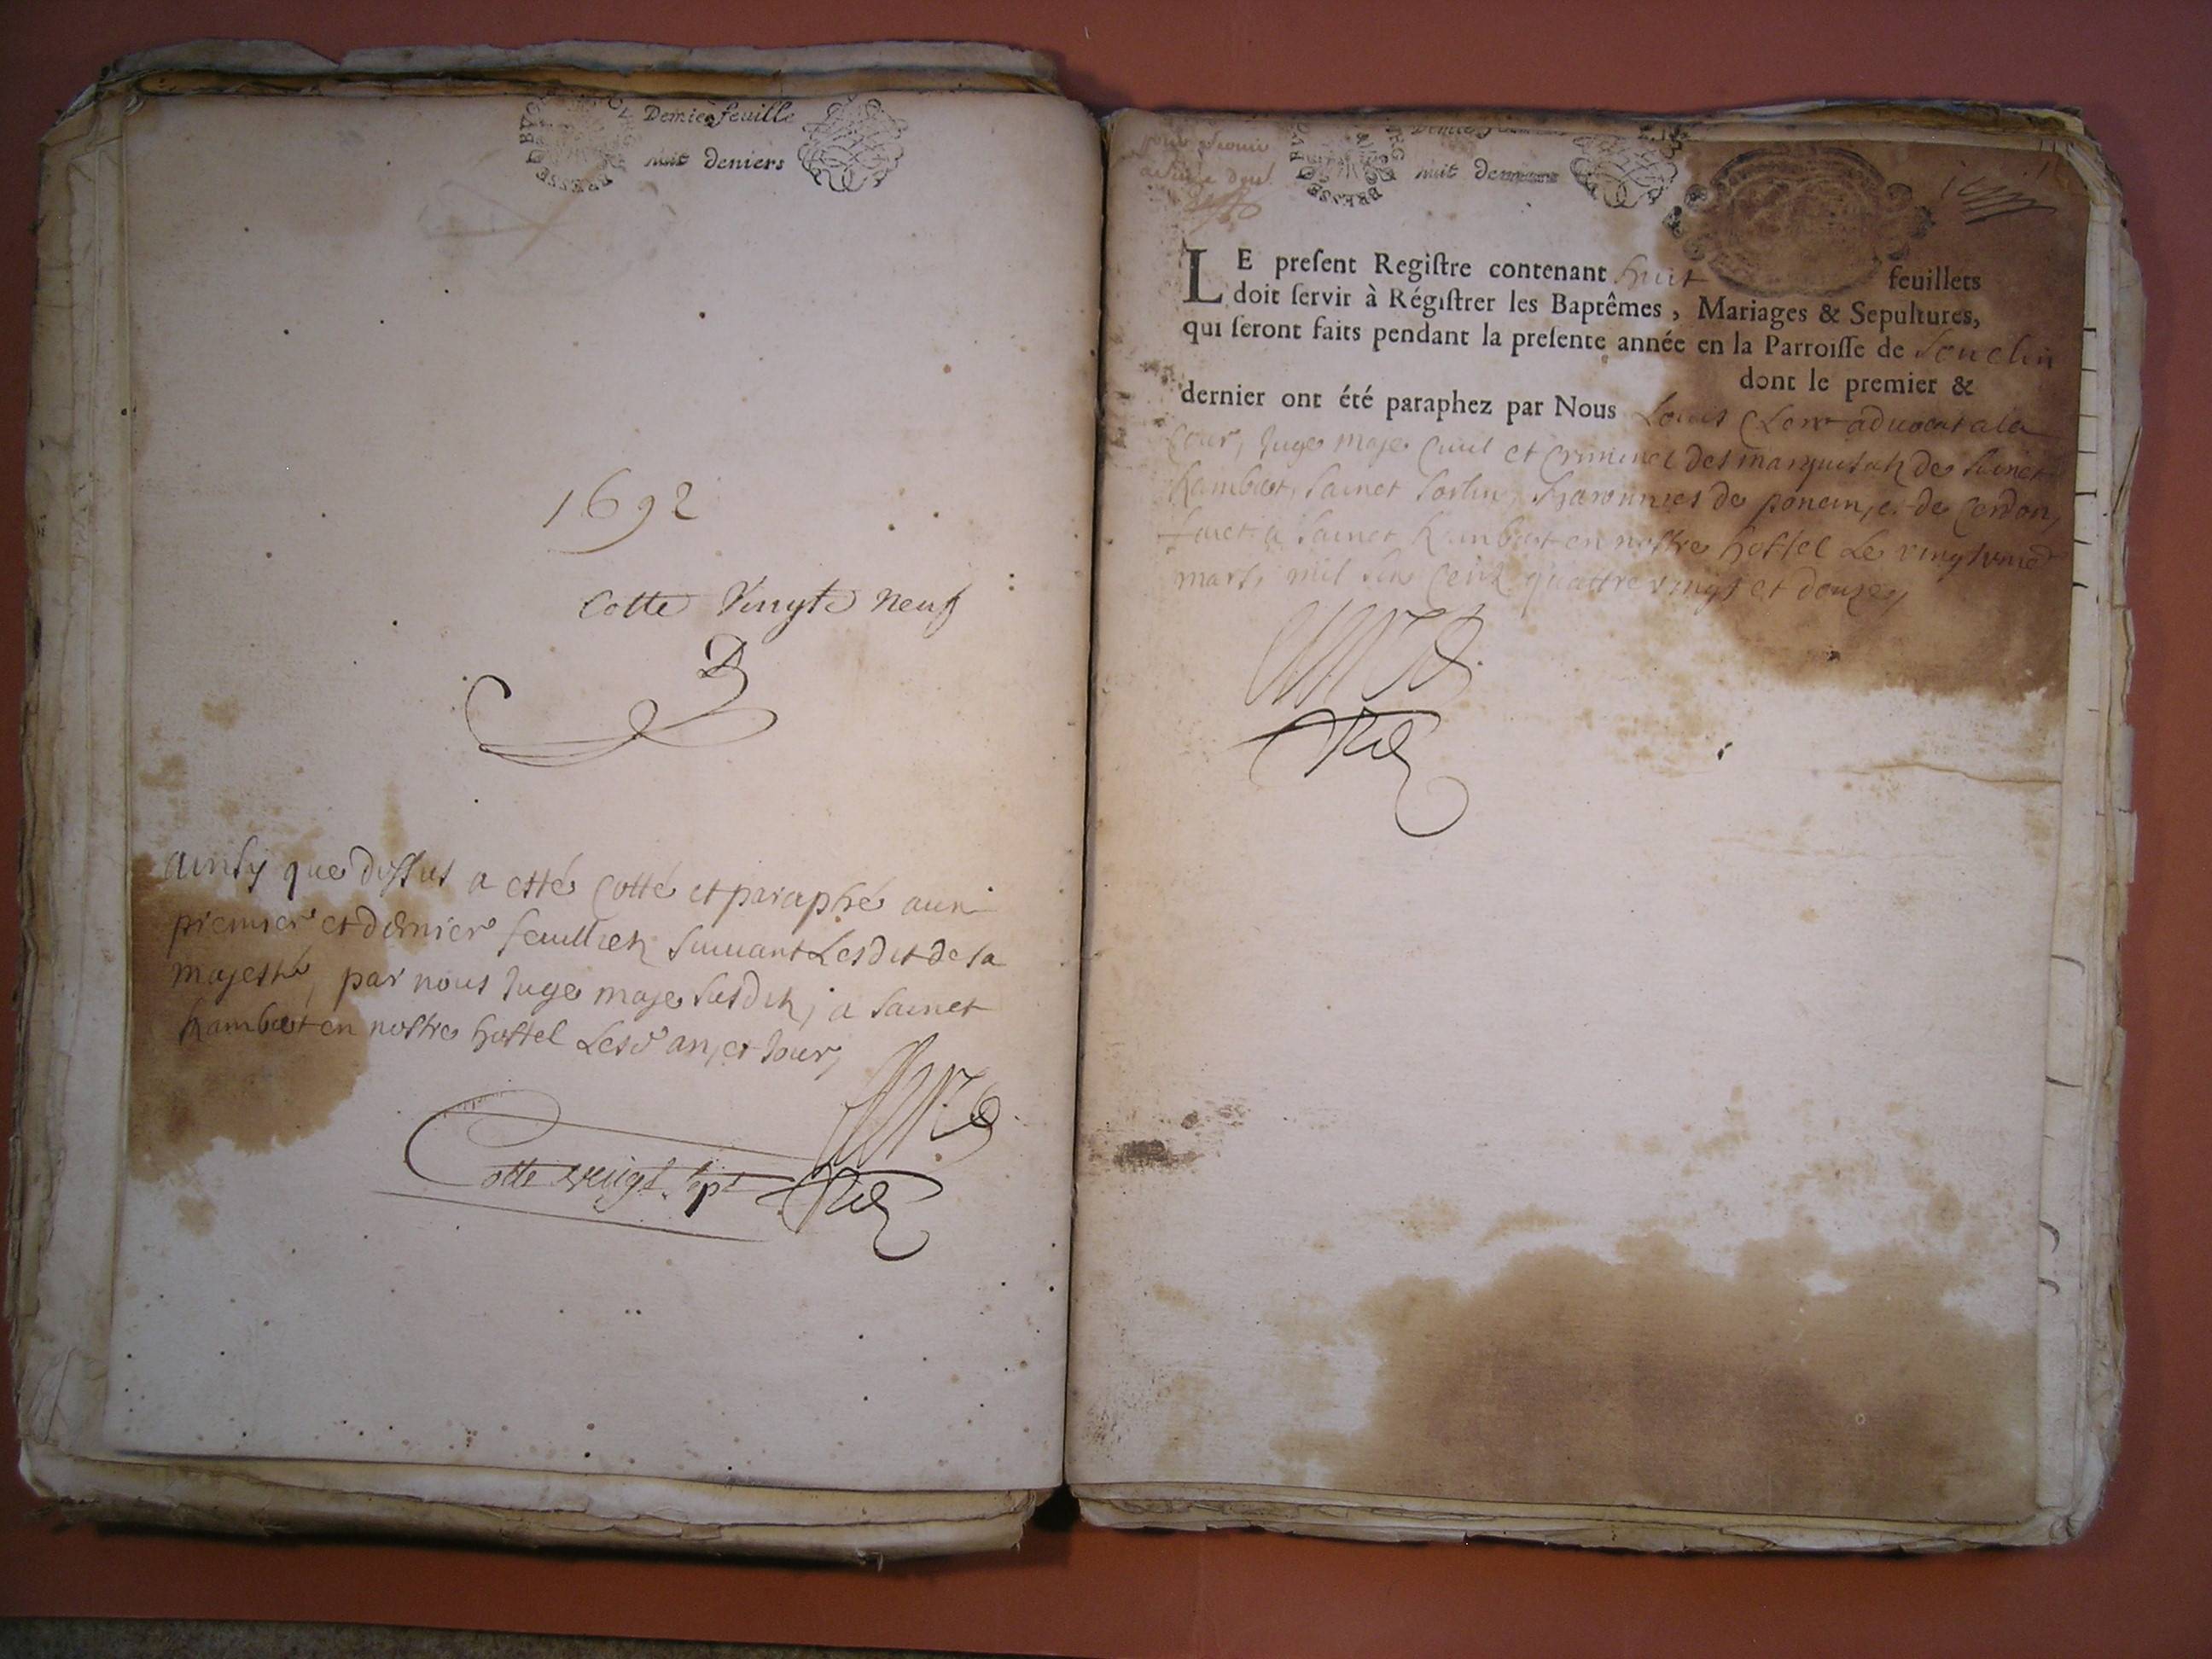 Demie feuille
huit deniers
1692
Cotte Vingte neuf
ainsy que dessus a esté cotté et paraphé aux
premier et dernier feuillets suivant Lesdit de sa
majesté, par nous Juge maje susdit, a Sainct
Rambert en nostre hostel Lesd an, et Jour,
Cotte vingt sept
huit deniers
LE present Registre contenant huit feuillets
doit servir à Régistrer les Baptêmes, Mariages & Sepultures,
qui seront faits pendant la presente année en la Parroisse de Souclin
dont le premier &
dernier ont été paraphez par Nous Louis advocat a la
Cour, Juge maje Civil et Criminel des marquisats de Sainct
Rambert, Sainct Sorlin, Baronnies de poncin, e. de Cerdon,
faict a Sainct Rambert en nostre hostel Le
mars, mil six Cent quattre vingt et douze